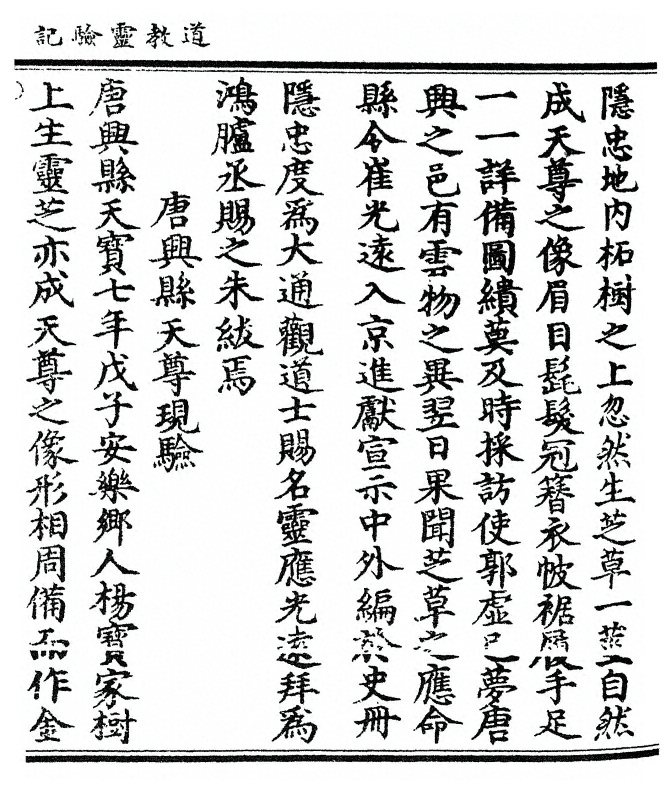 道教靈驗記
隱忠地内柘樹之上忽然生芝草一莖自然
成天尊之像眉目髭髮冠簪衣帔裾履手足
一一詳備圖繢莫及時採訪使郭虛己夢唐
興之邑有雲物之異翌日果聞芝草之應命
縣令崔光遠入京進獻宣示中外編於史冊
隱忠度爲大通觀道士賜名靈應光遠拜爲
鴻臚丞賜之朱紱焉
唐興縣天尊現驗
唐興縣天寶七年戊子安樂鄉人楊寶家樹
上生靈芝亦成天尊之像形相周備 作金